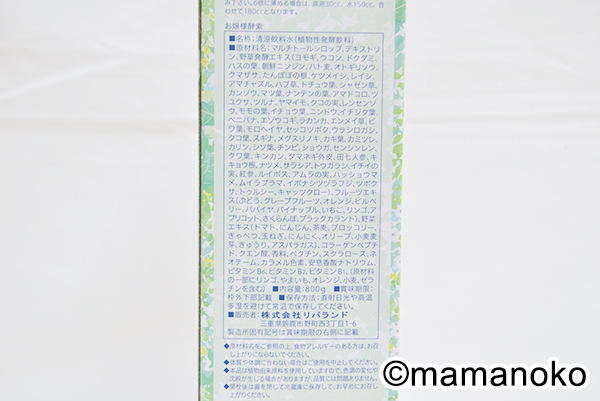 み下さい。6倍に薄める場合は、原液30cc、水150cc、合
わせて180ccとなります。
お嬢様酵素
■名称：清涼飲料水（植物性発酵飲料）
■原材料名：マルチトールシロップ、デキストリ
ン、野草発酵エキス（ヨモギ、ウコン、ドクダミ、
ハスの葉、朝鮮ニンジン、ハト麦、オトギリソウ、
クマザサ、たんぽぽの根、ケツメイシ、レイシ、
アマチャヅル、ハブ草、トチュウ葉、シャゼン草、
カンゾウ、マツ葉、ナンテンの葉、アマドコロ、
ツユクサ、ツルナ、ヤマイモ、クコの実、レンセンソ
ウ、モモの葉、イチョウ葉、ニンドウ、イチジク葉、
ベニバナ、エゾウコギ、ラカンカ、エンメイ草、ビ
ワ葉、モロヘイヤ、セッコツボク、ウラジロガシ、
クコ葉、スギナ、メグスリノキ、カキ葉、カミツレ、
カリン、シソ葉、チンピ、ショウガ、センシンレン、
クワ葉、キンカン、タマネギ外皮、田七人参、キ
キョウ根、ナツメ、サラシア、トウガラシ、イチイの
実、紅参、ルイボス、アムラの実、ハッショウマ
メ、ムイラプラマ、イボナシツヅラフジ、ツボク
サ、トゥルシー、キャッツクロー）、フルーツエキ
ス（ぶどう、グレープフルーツ、オレンジ、ビルベ
リー、パパイヤ、パイナップル、いちご、リンゴ、ア
プリコット、さくらんぼ、ブラックカラント）、野菜
エキス（トマト、にんじん、茶麦、ブロッコリー、
きゃべつ、玉ねぎ、にんにく、オリーブ、小麦麦
芽、きゅうり、アスパラガス）、コラーゲンペプチ
ド、クエン酸、香料、ペクチン、スクラロース、ネ
オテーム、カラメル色素、安息香酸ナトリウム、
ビタミンB6、ビタミンB2、ビタミンB1、（原材料
の一部にリンゴ、やまいも、オレンジ、小麦、ゼ
ラチンを含む）■内容量：800g ■賞味期限：
枠外下部記載 ■保存方法：直射日光や高温
多湿を避けて常温で保存してください。
■販売者：株式会社リバランド
三重県鈴鹿市野町西3丁目1-6
製造所固有記号は賞味期限の右側に記載
●原材料名をご参照の上、食物アレルギーのある方は、お召
し上がりにならないでください。
●体質や体調に合わない場合はご使用を中止してください。
●本品は植物由来原料を使用していますので、色調の変化や
沈殿が生じる場合がありますが、品質には問題ありません。
●開栓後は蓋を閉じて冷蔵庫に保存して、お早めにご使用く
©mamanoko